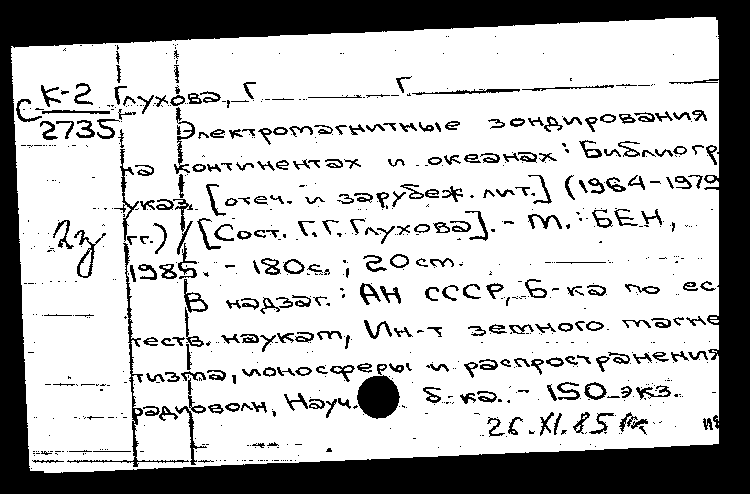 С К-2 Глухова, Г Г
2735
Электромагнитные зондирования
на континентах и океанах: Библиогр
указ. [отеч. и зарубеж. лит.] (1964-1979
гг.) / [Сост. Г.Г. Глухова]. - М.: БЕН,
1985. - 180с.; 20см.
2з
В надзаг.: АН СССР, Б-ка по ес-
теств. наукам, Ин-т земного магне
тизма, ионосферы и распространения
радиоволн, Науч. б-ка. - 150 экз.
26.XI.85